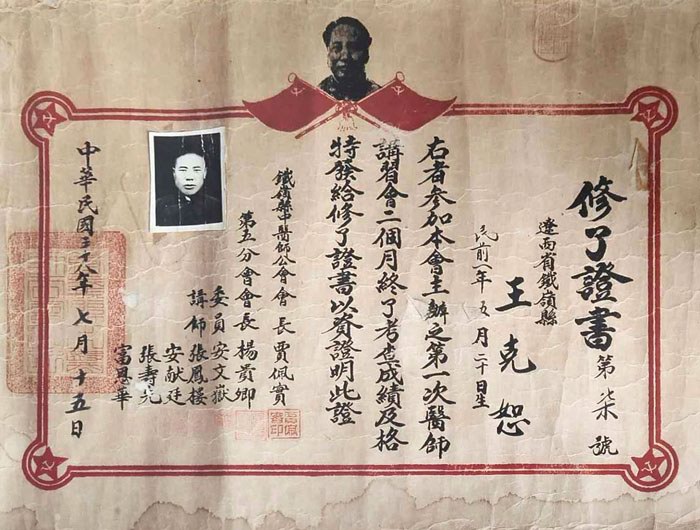 修了證書第柒號
遼西省鐵嶺縣
王克恕
民前一年五月二十日生
右者參加本會主辦之第一次醫師
講習會二個月終了考查成績及格
特發給修了證書以資證明此證
鐵嶺縣中醫師公會會長賈佩實
第五分會會長楊貢卿
委員安文嶽
講師張鳳樓
安献廷
張壽先
富恩華
中華民國三十八年七月十五日